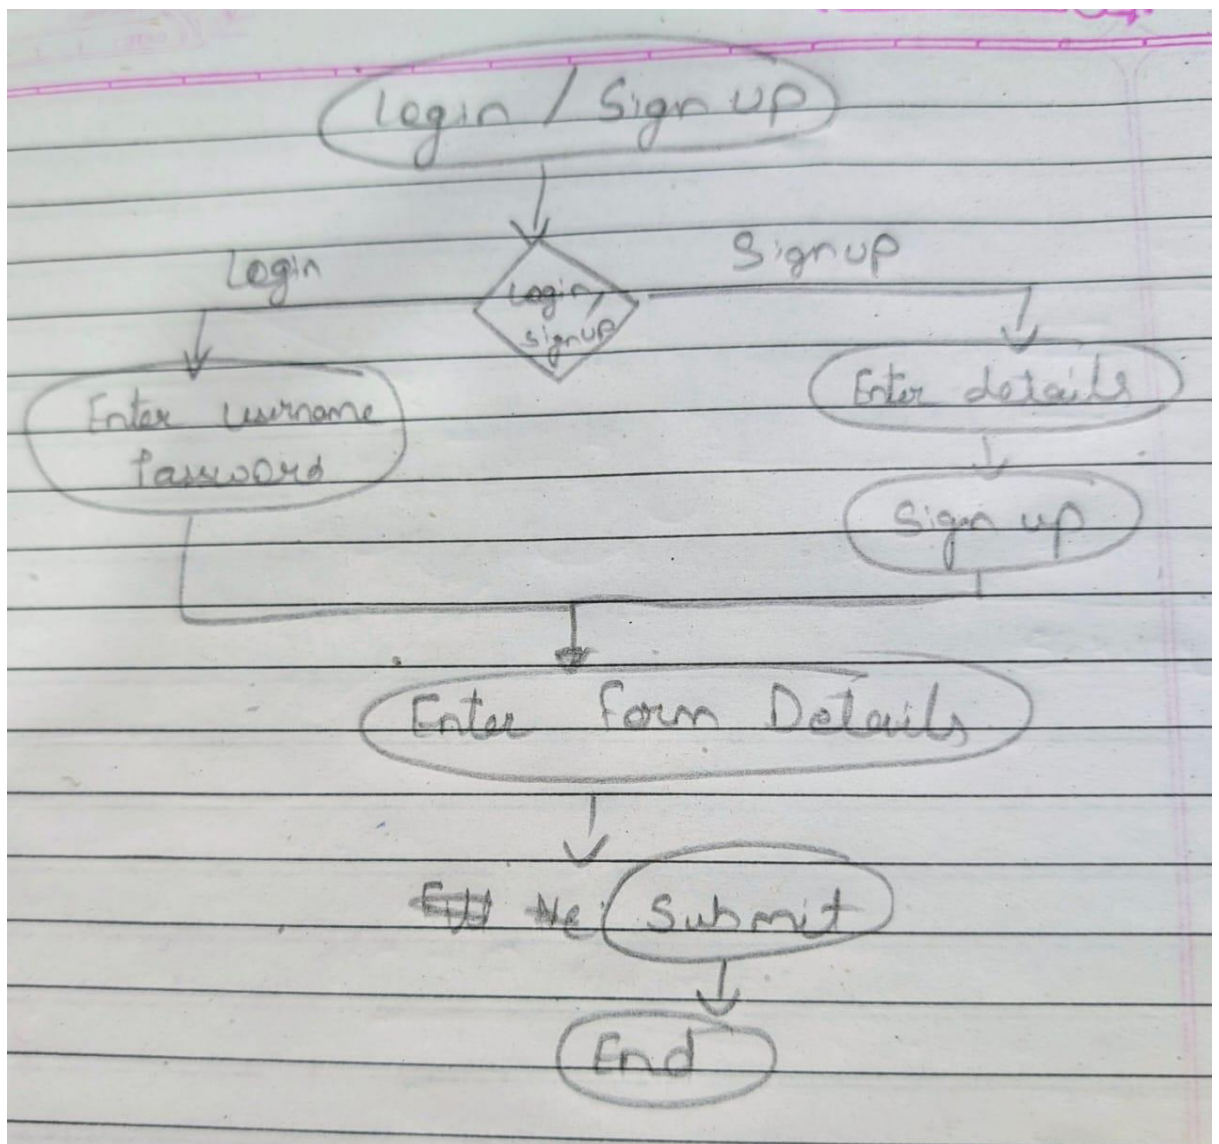 Login / Sign up
Login
Signup
Login/
signup
Enter username
Password
Enter details
Sign up
Enter Form Details
Submit
End